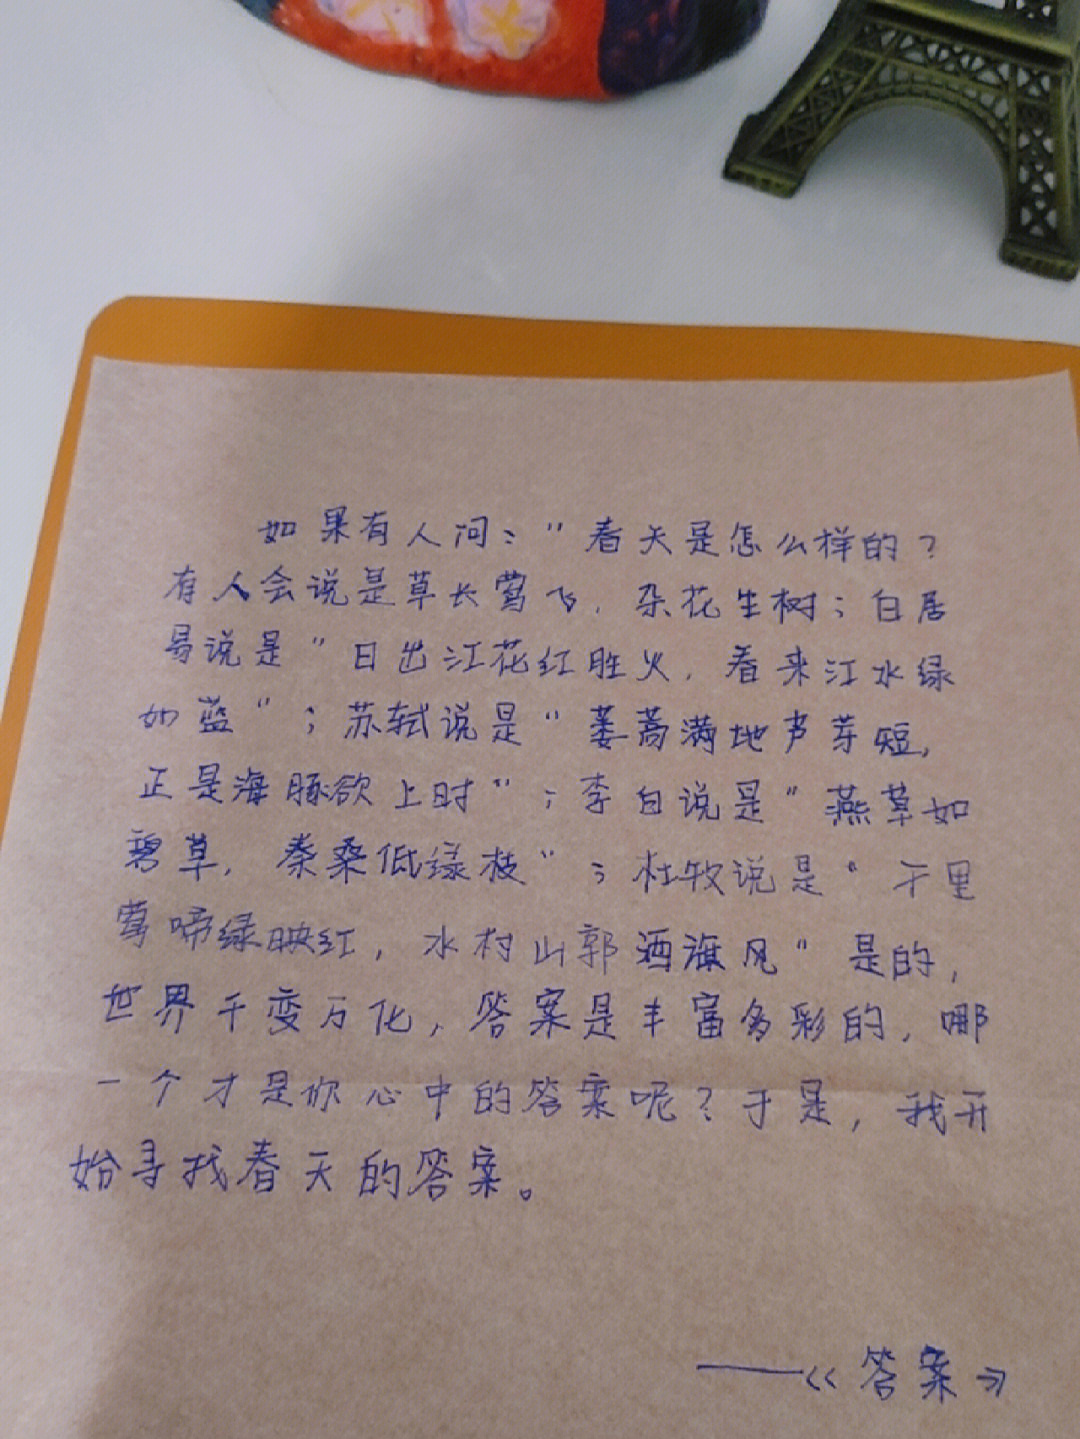 如果有人问："春天是怎么样的？
有人会说是草长莺飞，杂花生树；白居
易说是"日出江花红胜火，春来江水绿
如蓝"；苏轼说是"蒌蒿满地芦芽短，
正是海豚欲上时"；李白说是"燕草如
碧草，秦桑低绿枝"；杜牧说是"千里
莺啼绿映红，水村山郭酒海风"是的，
世界千变万化，答案是丰富多彩的，哪
一个才是你心中的答案呢？于是，我开
始寻找春天的答案。
——《答案》